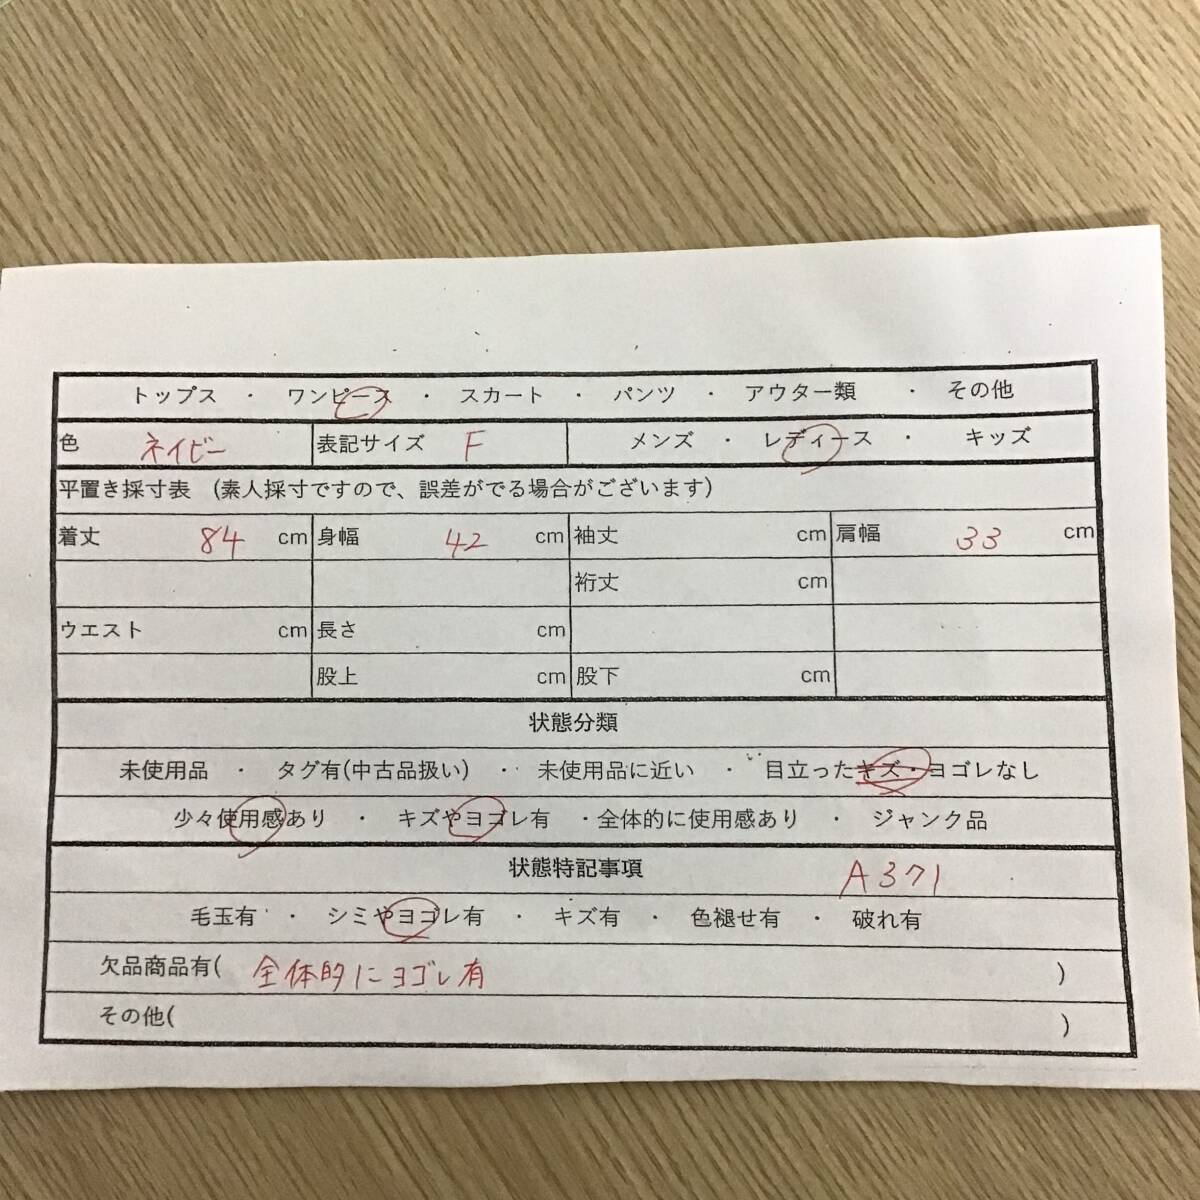 トップス ・ ワンピース ・ スカート ・ パンツ ・ アウター類 ・ その他
色 ネイビー 表記サイズ F メンズ ・ レディース ・ キッズ
平置き採寸表 (素人採寸ですので、誤差がでる場合がございます)
着丈 84 cm 身幅 42 cm 袖丈 cm 肩幅 33 cm
裄丈 cm
ウエスト cm 長さ cm
股上 cm 股下 cm
状態分類
未使用品 ・ タグ有(中古品扱い) ・ 未使用品に近い ・ 目立ったキズ・ヨゴレなし
少々使用感あり ・ キズやヨゴレ有 ・全体的に使用感あり ・ ジャンク品
状態特記事項 A371
毛玉有 ・ シミやヨゴレ有 ・ キズ有 ・ 色褪せ有 ・ 破れ有
欠品商品有( 全体的にヨゴレ有 )
その他( )